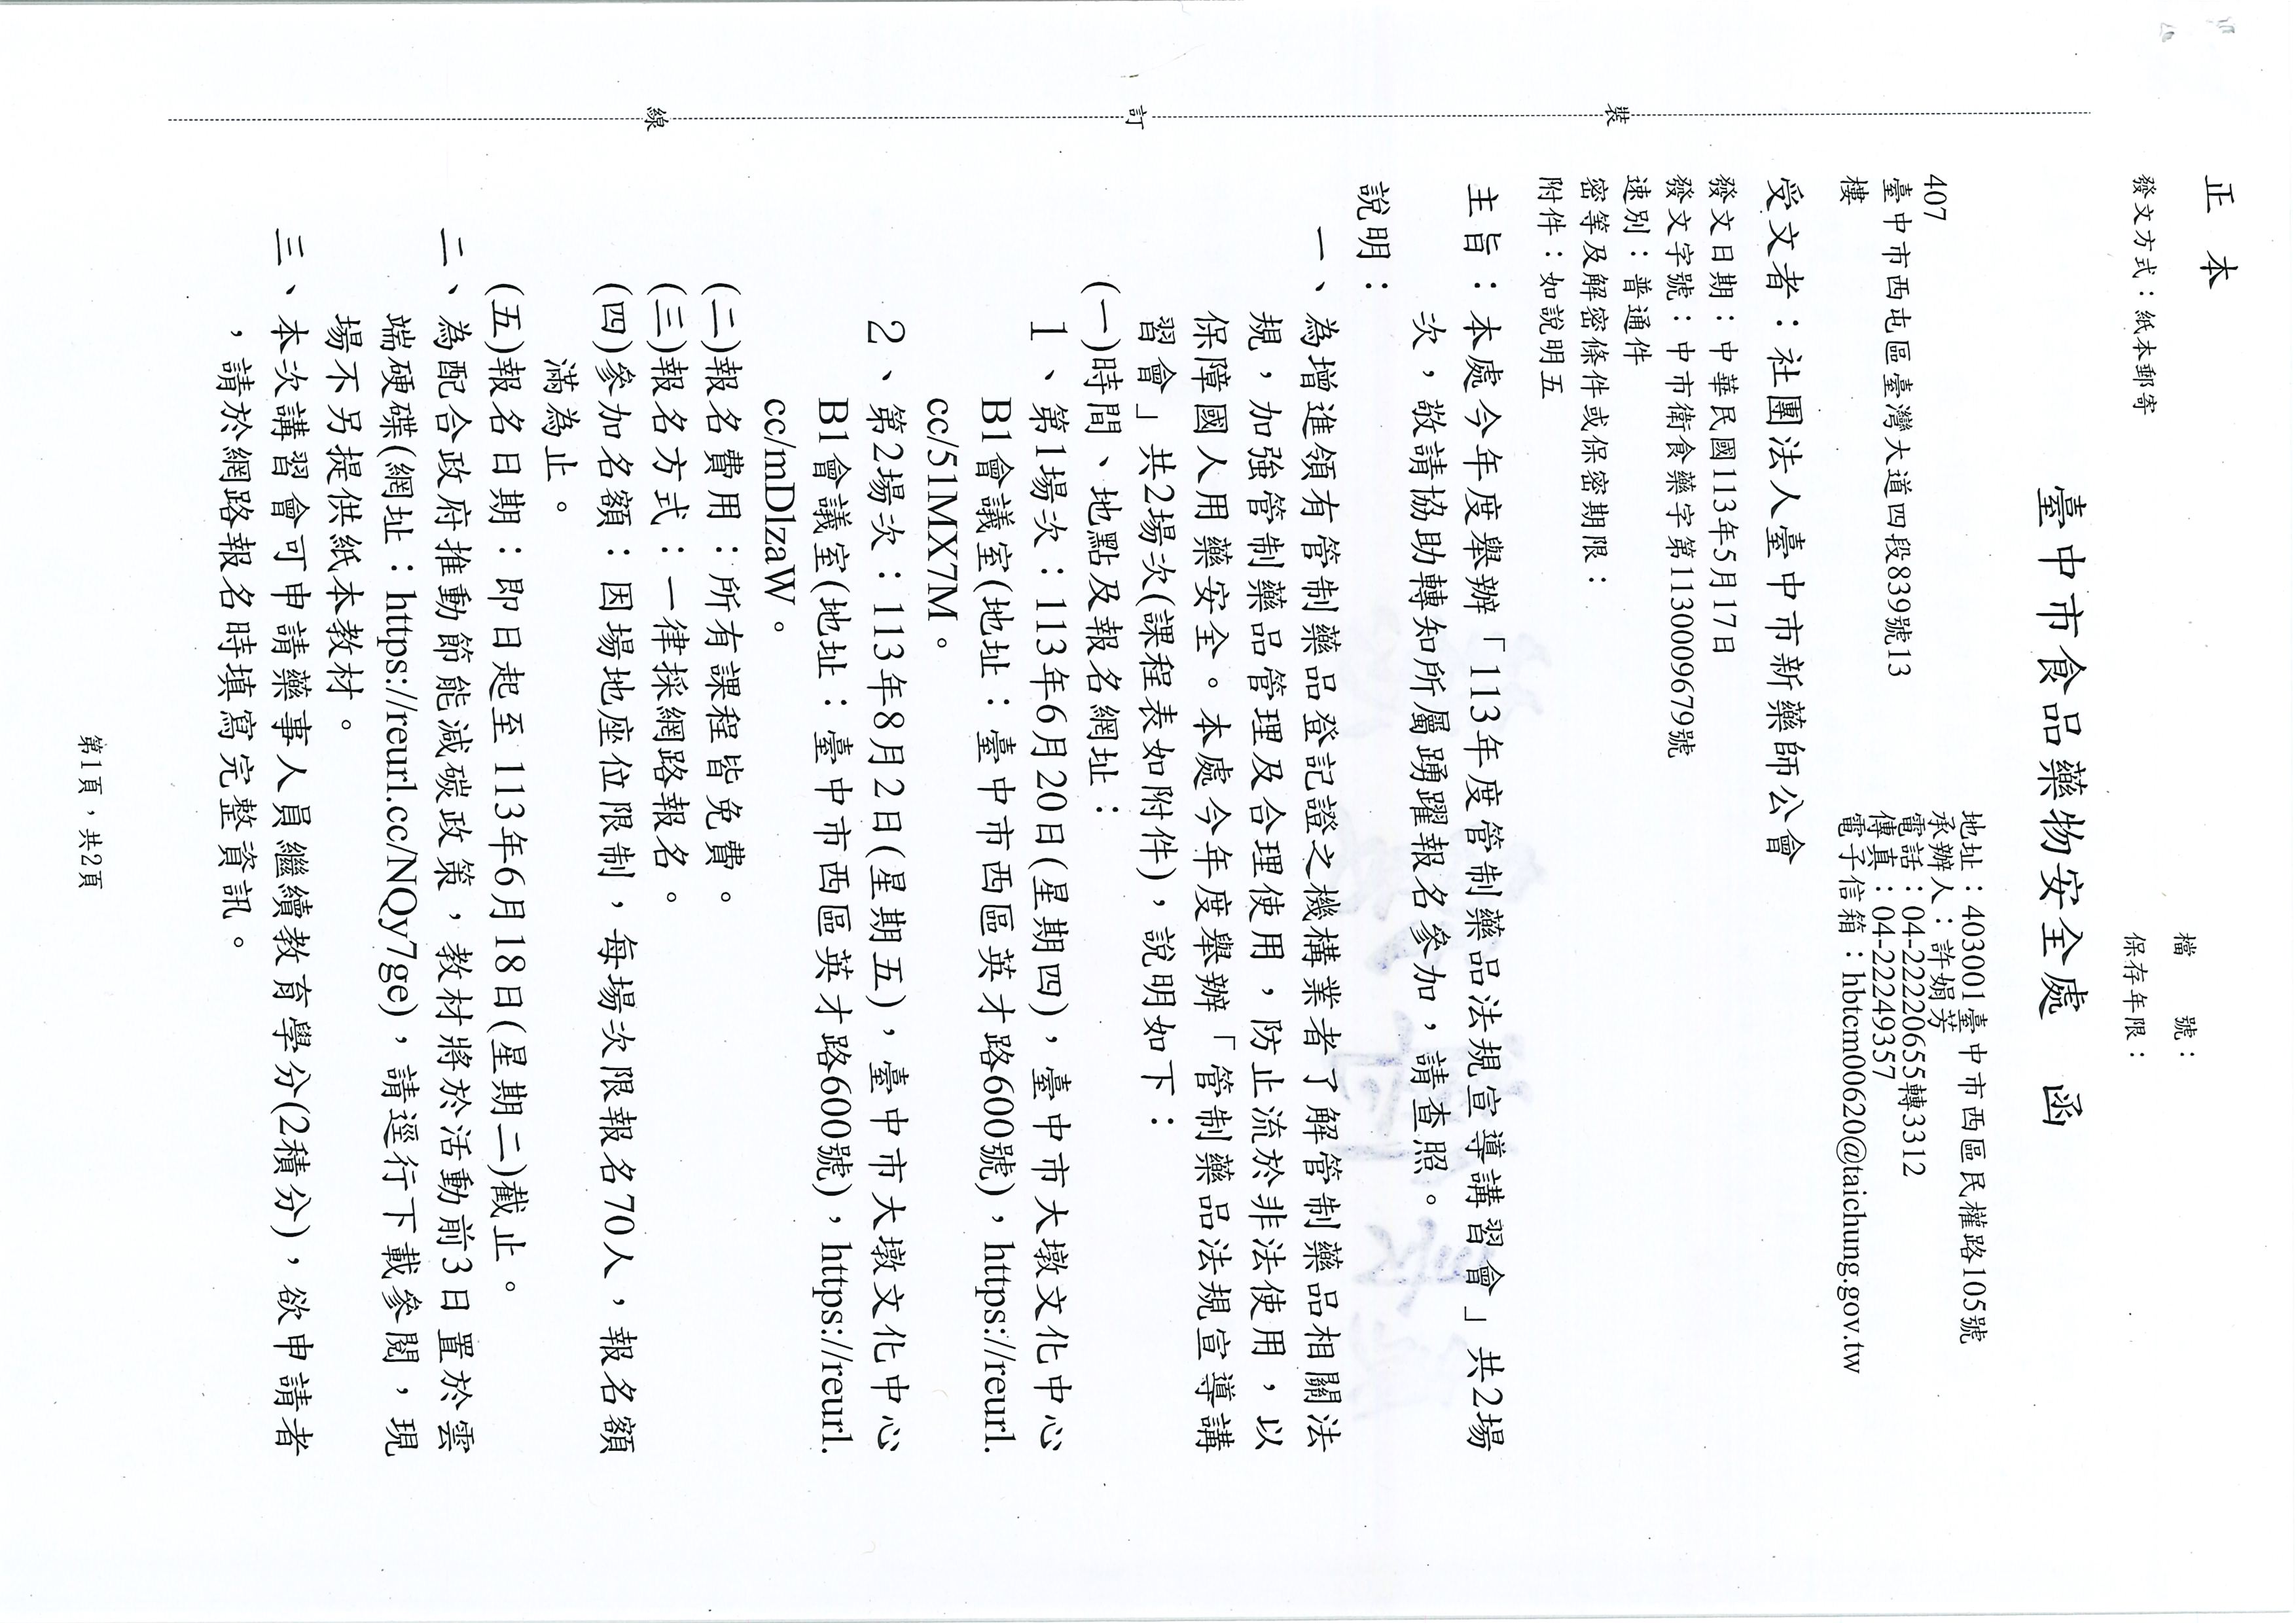 正本
發文方式：紙本郵寄
檔　　號：
保存年限：
臺中市食品藥物安全處　函
地址：403001臺中市西區民權路105號
承辦人：許娟芳
電話：04-22220655轉3312
傳真：04-22249357
電子信箱：hbtcm00620@taichung.gov.tw
407
臺中市西屯區臺灣大道四段839號13
樓
受文者：社團法人臺中市新藥師公會
發文日期：中華民國113年5月17日
發文字號：中市衛食藥字第1130009679號
速別：普通件
密等及解密條件或保密期限：
附件：如說明五
主旨：本處今年度舉辦「113年度管制藥品法規宣導講習會」共2場
次，敬請協助轉知所屬踴躍報名參加，請查照。
說明：
一、為增進領有管制藥品登記證之機構業者了解管制藥品相關法
規，加強管制藥品管理及合理使用，防止流於非法使用，以
保障國人用藥安全。本處今年度舉辦「管制藥品法規宣導講
習會」共2場次(課程表如附件)，說明如下：
(一)時間、地點及報名網址：
1、第1場次：113年6月20日(星期四)，臺中市大墩文化中心
B1會議室(地址：臺中市西區英才路600號)，https://reurl.
cc/51MX7M。
2、第2場次：113年8月2日(星期五)，臺中市大墩文化中心
B1會議室(地址：臺中市西區英才路600號)，https://reurl.
cc/mDlzaW。
(二)報名費用：所有課程皆免費。
(三)報名方式：一律採網路報名。
(四)參加名額：因場地座位限制，每場次限報名70人，報名額
滿為止。
(五)報名日期：即日起至113年6月18日(星期二)截止。
二、為配合政府推動節能減碳政策，教材將於活動前3日置於雲
端硬碟(網址：https://reurl.cc/NQy7ge)，請逕行下載參閱，現
場不另提供紙本教材。
三、本次講習會可申請藥事人員繼續教育學分(2積分)，欲申請者
，請於網路報名時填寫完整資訊。
裝
訂
線
第1頁，共2頁